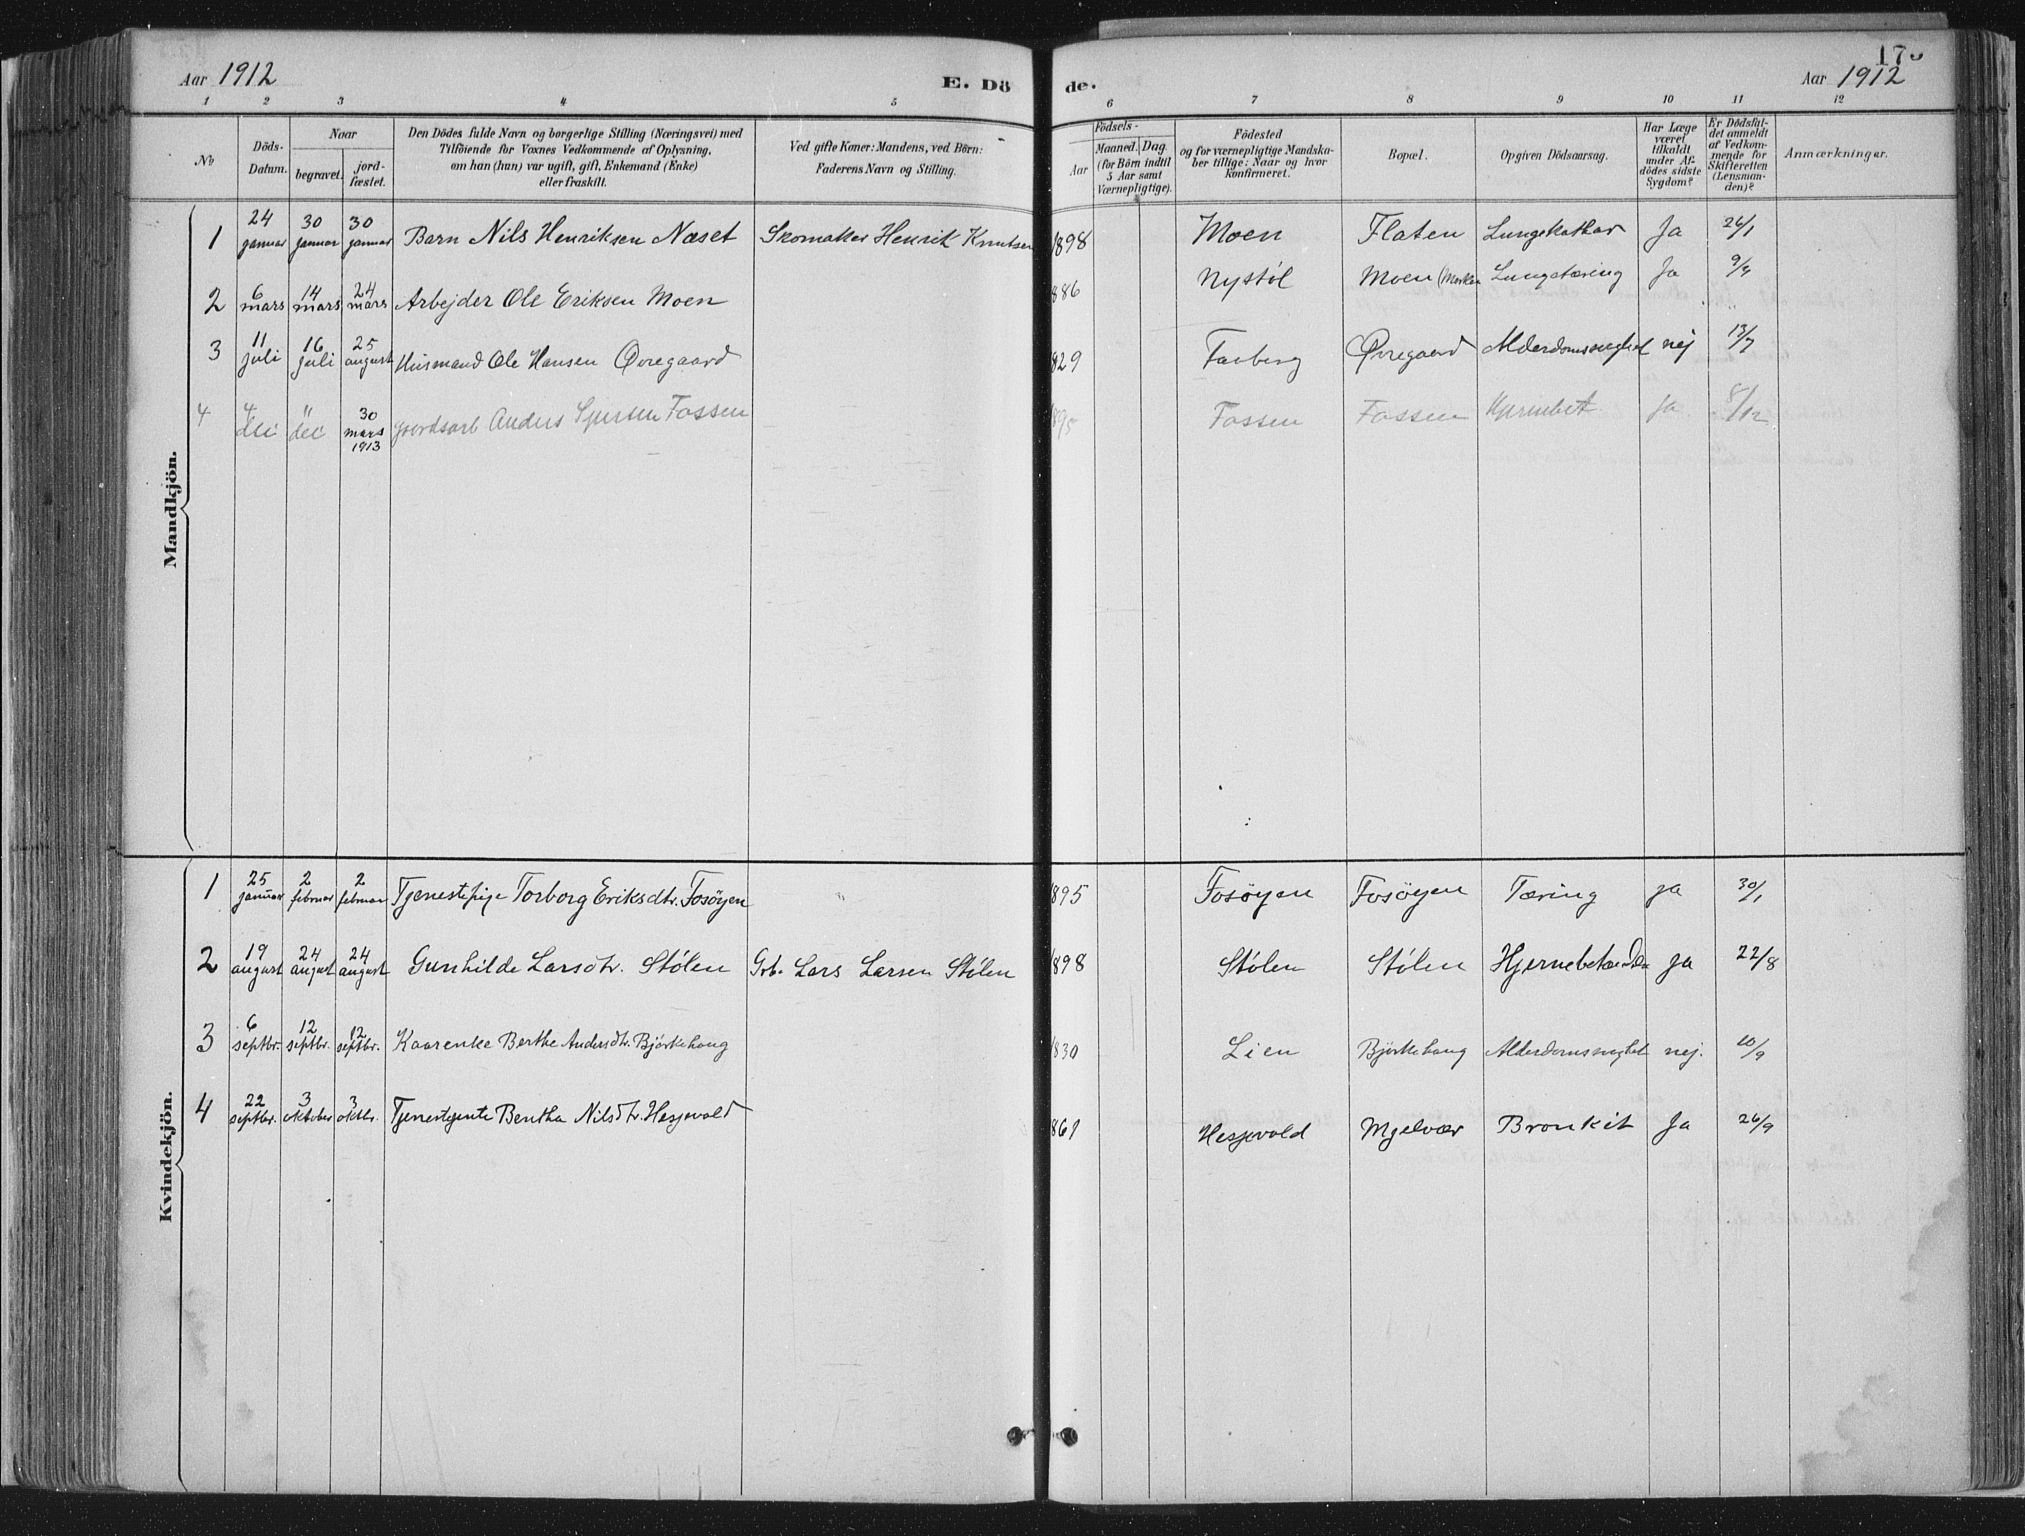 Aar 1912
E. Dö
de.
Aar 1912
1 2 3 4 5 6 7 8 9 10 11 12
No
Döds-Datum.
Naar
begravet.
jord-fæstet.
Den Dödes fulde Navn og borgerlige Stilling (Næringsvei) med
Tilföiende for Voxnes Vedkommende af Oplysning,
om han (hun) var ugift, gift, Enkemand (Enke)
eller fraskilt.
Ved gifte Koner: Mandens, ved Börn:
Faderens Navn og Stilling.
Födsels-
Aar
Maaned. Dag
(for Börn indtil
5 Aar samt
Værnepligtige).
Födested
og for værnepligtige Mandska-
ber tillige: Naar og hvor
konfirmeret.
Bopæl.
Opgiven Dödsaarsag.
Har Læge
været
tilkaldt
under Af-
dödes sidste
Sygdom?
Er Dödsfal-
det anmeldt
af Vedkom-
mende for
Skifteretten
(Lensman-
den)?
Anmærkninger.
Mandkjön.
1 24 januar 30 januar 30 januar Barn Nils Henriksen Næset Skomaker Henrik Knutsen 1898 Moen Flaten Lungekathar Ja 26/1
2 6 mars 14 mars 24 mars Arbejder Ole Eriksen Moen 886 Nystøl Moen Lungetæring Ja
3 11 juli 16 juli 25 august Husmand Ole Hansen Øvregaard 829 Øvregaard nej 13/7
4 4 dec 11 dec 30 mars 1913 Anders Fossen Fossen Fossen Hjernebet ja 8/12
Kvindekjön.
1 25 januar 2 februar 2 februar Tjenestepige Torborg Eriksdtr. Fosøyen 1895 Fosøyen Fosøyen Tæring ja 30/1
2 19 august 24 august 24 august Gunhilde Larsdtr. Stølen Grb. Lars Larsen Stølen 1898 Stølen Stølen ja 22/8
3 6 septbr. 12 septbr. 12 septbr. Kaarenke Berthe Andersdtr. Bjørkehaug 1830 Lien Bjørkehaug Alderdomssvaghet nej. 10/9
4 22 septbr. 3 oktober 3 oktbr. Tjenestejente Bertha Nilsdtr. Hesjevold 861 Hesjevold Mjelvær Bronkit Ja 26/9